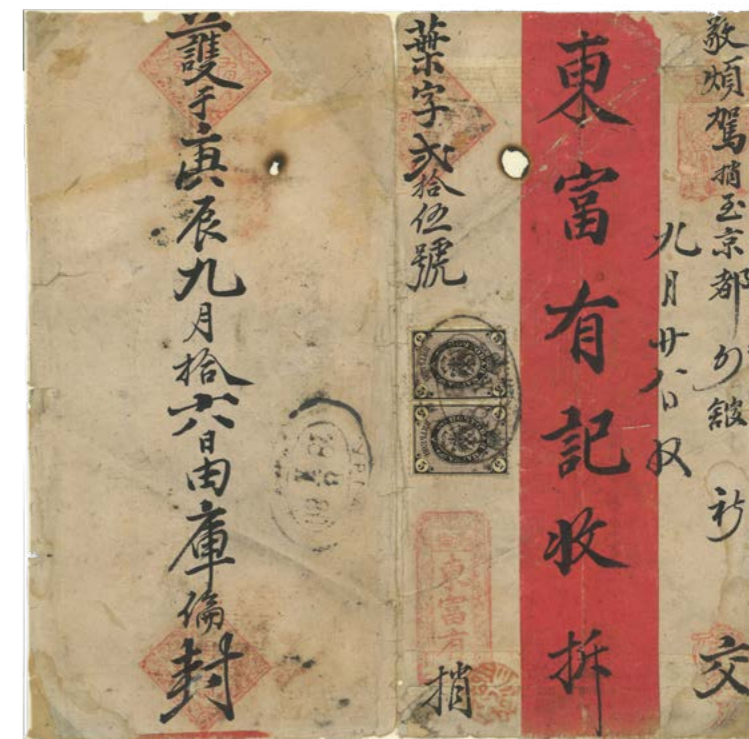 敬煩駕捎至京都 館 交
九月廿八日收
東富有記收拆
葉字弍拾伍號 捎
東富有
護于庚辰九月拾六日由庫倫封
5
5